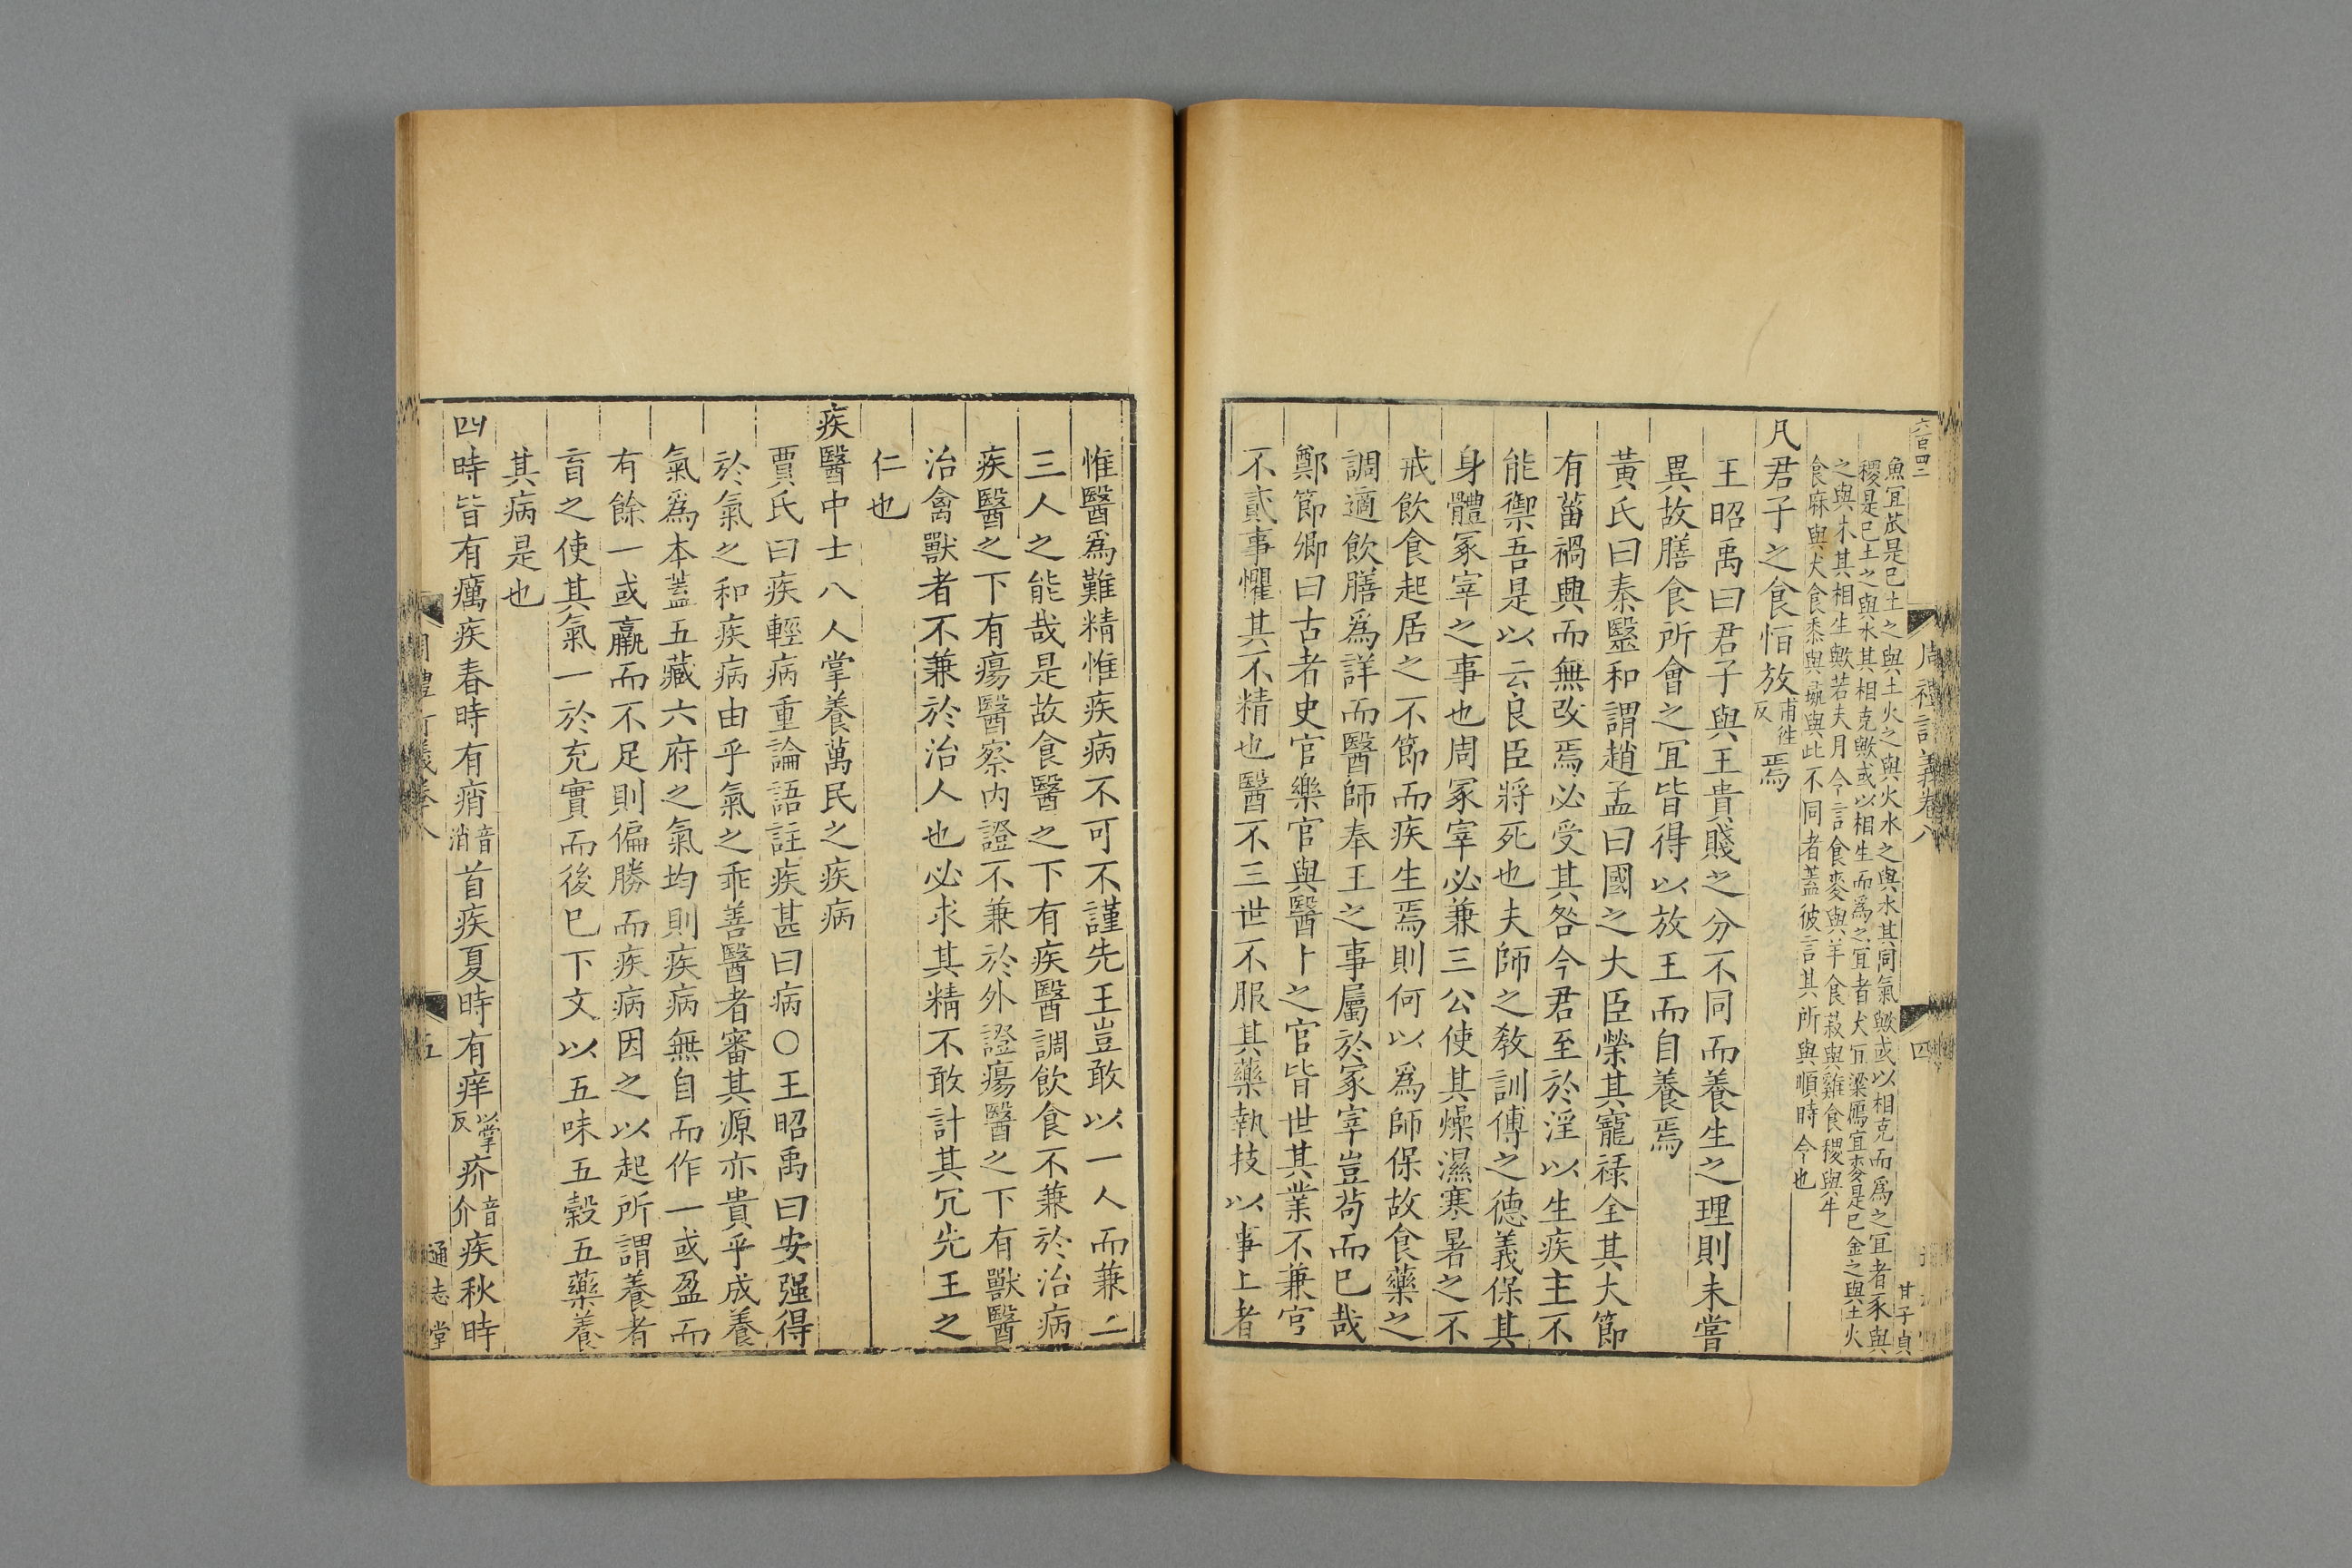 六百四二
周禮訂義卷八
四
甘子貞
魚宜苽是已土之與土火之與火水之與水其同氣歟或以相克而為之宜者豕與
稷是已土之與水其相克歟或以相生而為之宜者犬宜粱鴈宜麥是已金之與土火
之與木其相生歟若夫月令言食麥與羊食菽與雞食稷與牛
食麻與犬食黍與彘與此不同者蓋彼言其所與順時令也
凡君子之食恒放甫徃反焉
王昭禹曰君子與王貴賤之分不同而養生之理則未嘗
異故膳食所會之宜皆得以放王而自養焉
黃氏曰秦毉和謂趙孟曰國之大臣榮其寵祿全其大節
有菑禍興而無改焉必受其咎今君至於淫以生疾主不
能禦吾是以云良臣將死也夫師之敎訓傅之德義保其
身體冢宰之事也周冢宰必兼三公使其燥濕寒暑之不
戒飲食起居之不節而疾生焉則何以為師保故食藥之
調適飲膳為詳而醫師奉王之事屬於冢宰豈苟而已哉
鄭節卿曰古者史官樂官與醫卜之官皆世其業不兼官
不貳事懼其不精也醫不三世不服其藥執技以事上者
惟醫爲難精惟疾病不可不謹先王豈敢以一人而兼二
三人之能哉是故食醫之下有疾醫調飲食不兼於治病
疾醫之下有瘍醫察內證不兼於外證瘍醫之下有獸醫
治禽獸者不兼於治人也必求其精不敢計其冗先王之
仁也
疾醫中士八人掌養萬民之疾病
賈氏曰疾輕病重論語註疾甚曰病○王昭禹曰安强得
於氣之和疾病由乎氣之乖善醫者審其源亦貴乎成養
氣爲本蓋五藏六府之氣均則疾病無自而作一或盈而
有餘一或羸而不足則偏勝而疾病因之以起所謂養者
盲之使其氣一於充實而後已下文以五味五穀五藥養
其病是也
四時皆有癘疾春時有痟音消首疾夏時有痒以掌反疥音介疾秋時
周禮訂義卷八
五
通志堂